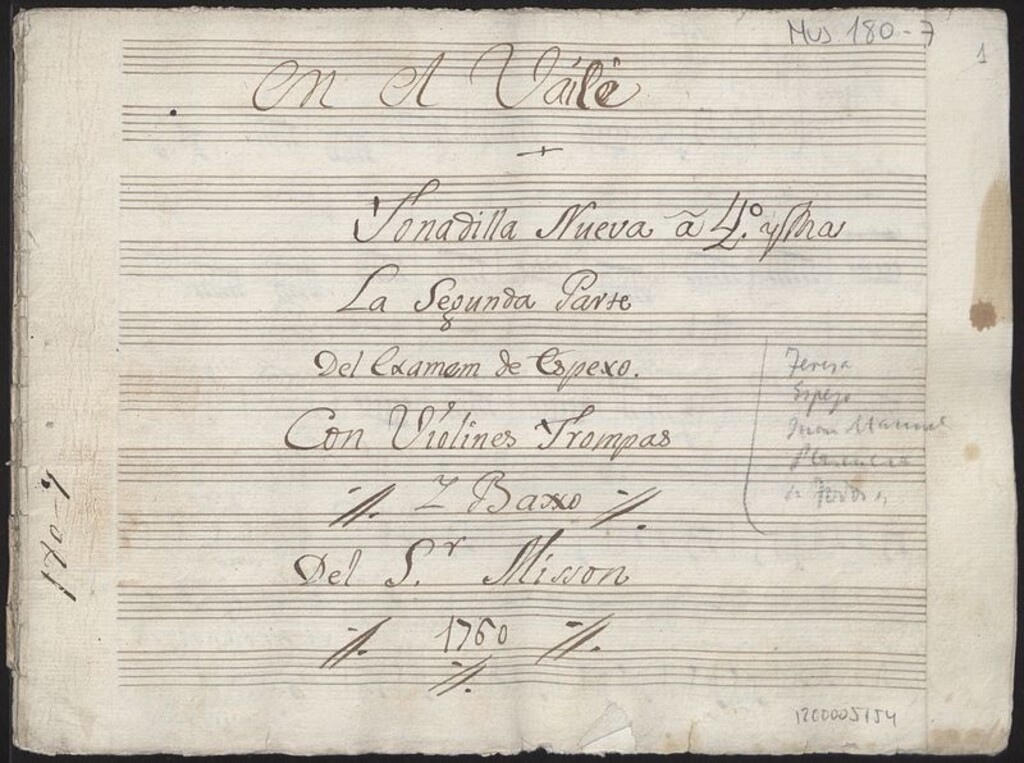 Mus 180-7
1
En El Vaile
Tonadilla Nueva â 4.º
La Segunda Parte
Del Examem de Espexo.
Con Violines Trompas
Y Baxo
Del S.r Misson
1760
Teresa
Espejo
Juan Manuel
Plasencia
170-7
1200005154